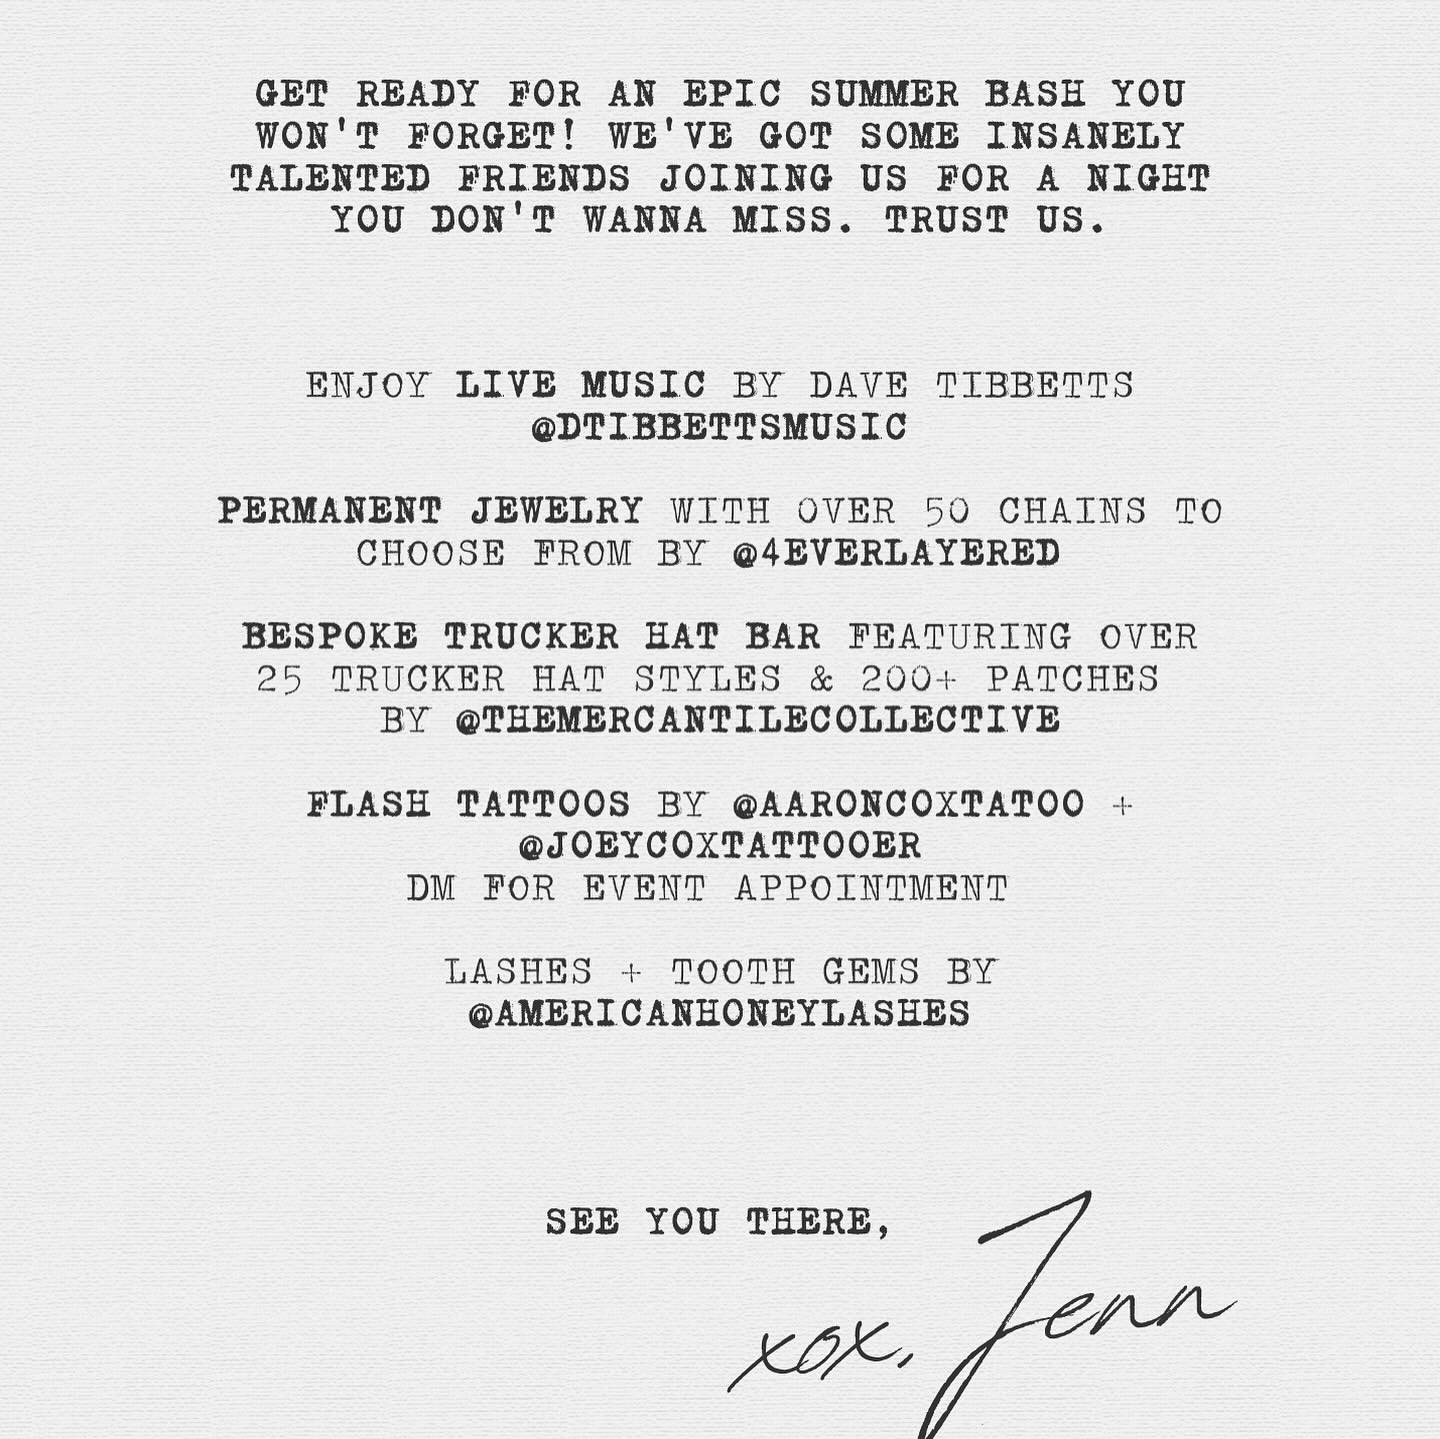 GET READY FOR AN EPIC SUMMER BASH YOU
WON'T FORGET! WE'VE GOT SOME INSANELY
TALENTED FRIENDS JOINING US FOR A NIGHT
YOU DON'T WANNA MISS. TRUST US.
ENJOY LIVE MUSIC BY DAVE TIBBETTS
@DTIBBETTSMUSIC
PERMANENT JEWELRY WITH OVER 50 CHAINS TO
CHOOSE FROM BY @4EVERLAYERED
BESPOKE TRUCKER HAT BAR FEATURING OVER
25 TRUCKER HAT STYLES & 200+ PATCHES
BY @THEMERCANTILECOLLECTIVE
FLASH TATTOOS BY @AARONCOXTATOO +
@JOEYCOXTATTOOER
DM FOR EVENT APPOINTMENT
LASHES + TOOTH GEMS BY
@AMERICANHONEYLASHES
SEE YOU THERE,
xox, Jenn